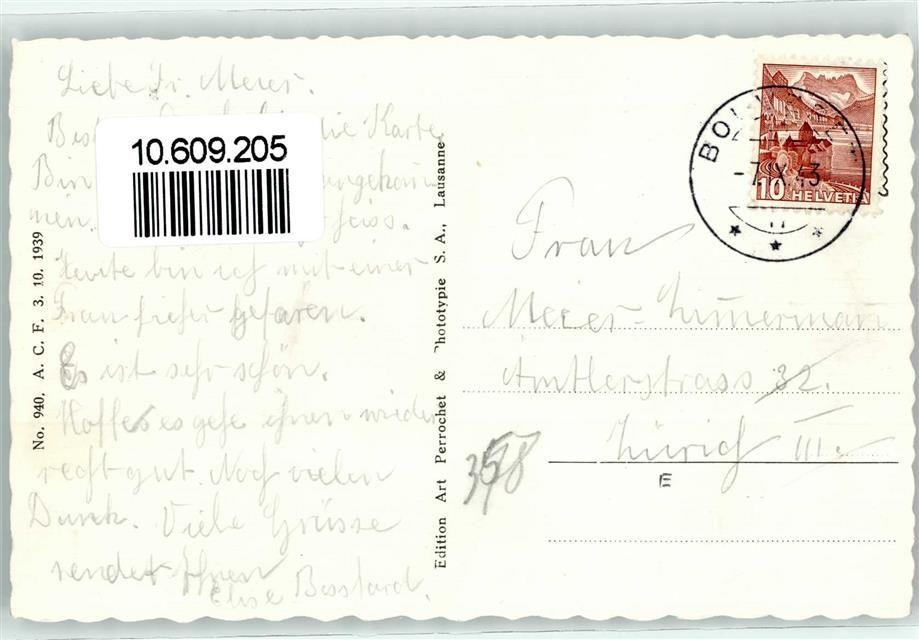 Liebe Fr. Meier.
die Karte
Bin
nen.
Heute bin ich mit einer
Frau hieher gefaren.
Es ist sehr schön.
Hoffe es gehe ihnen wieder
recht gut. Noch vielen
Dank. Viele Grüsse
sendet Ihnen
Elise Bosshard.
10.609.205
No. 940, A. C. F. 3. 10. 1939
Edition Art Perrochet & Phototypie S. A., Lausanne
-7.IX.43
10 HELVETIA
Frau
Meier-Zimmermann
Amtlerstrass 32.
Zürich III
358
E